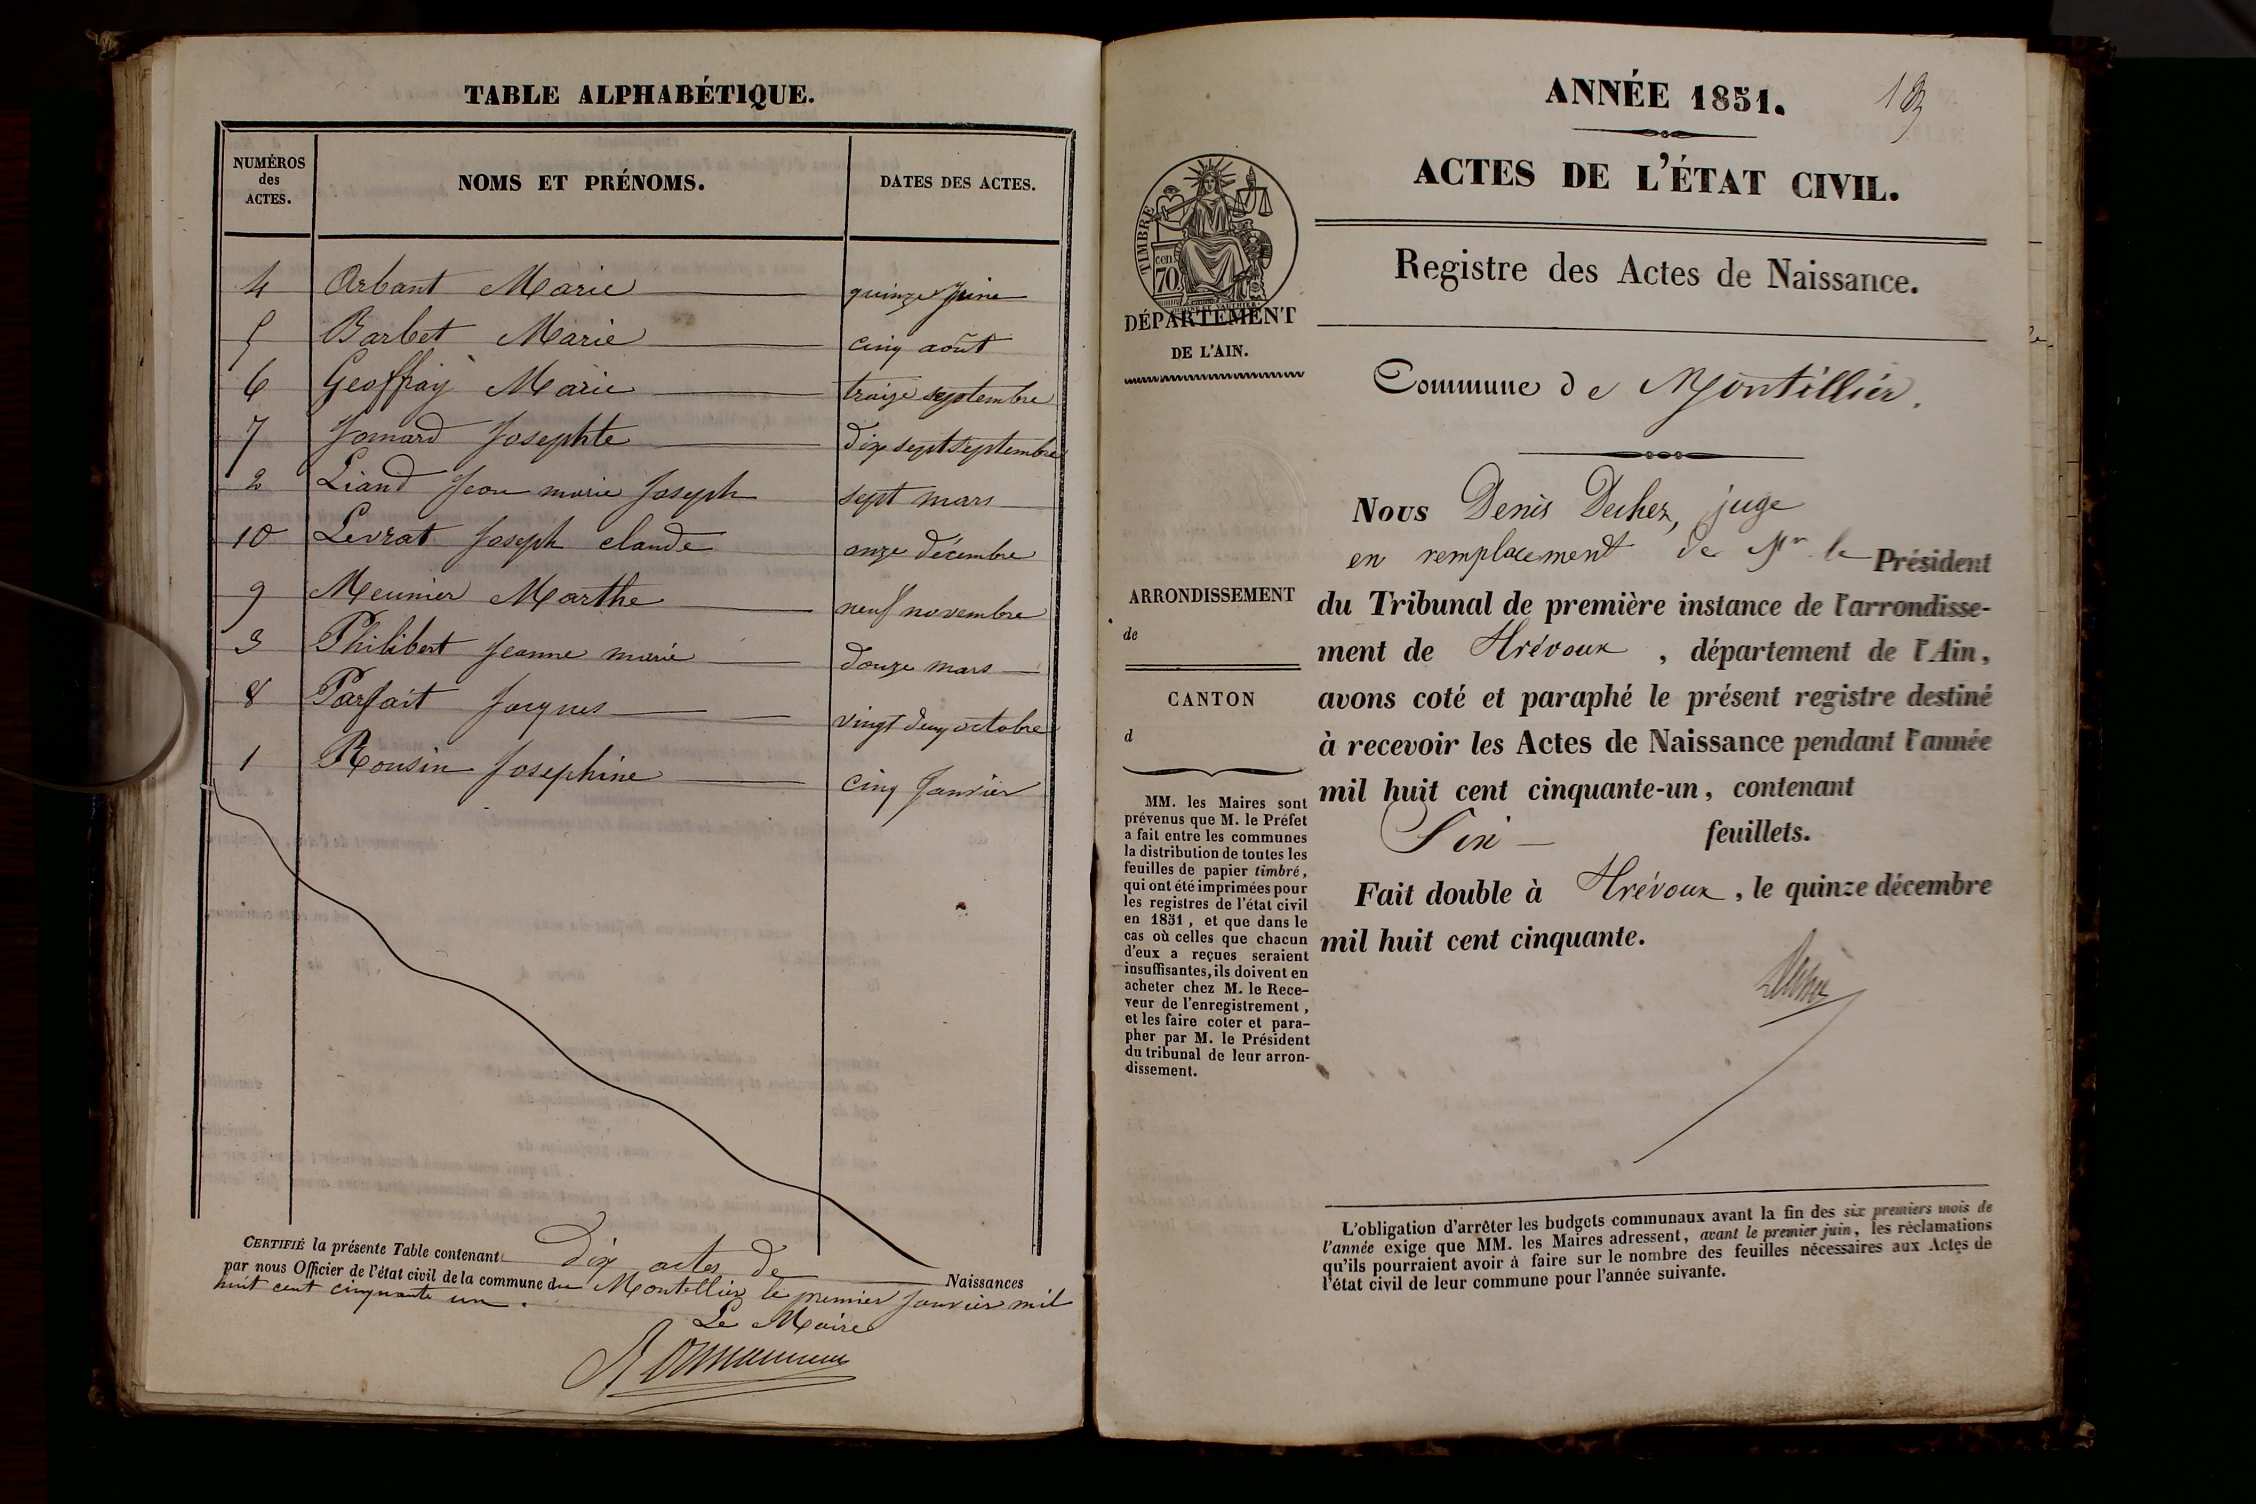 TABLE ALPHABÉTIQUE.
NUMÉROS des ACTES. NOMS ET PRÉNOMS. DATES DES ACTES.
4 Arbant Marie quinze Juin
5 Barbet Marie cinq août
6 Geoffray Marie traize septembre
7 Jomard Josephte dix sept septembre
2 Liand Jean marie Joseph sept mars
10 Levrat Joseph claude onze décembre
9 Meunier Marthe neuf novembre
3 Philibert Jeanne marie douze mars
8 Parfait Jacques vingt deux octobre
1 Rousin Josephine cinq Janvier
CERTIFIÉ la présente Table contenant Dix actes de Naissances
par nous Officier de l'état civil de la commune du Montellier le premier Janvier mil
huit cent cinquante un.
Le Maire
ANNÉE 1851.
ACTES DE L'ÉTAT CIVIL.
TIMBRE
70 cen.
Registre des Actes de Naissance.
DÉPARTEMENT
DE L'AIN.
Commune de Montillier.
Nous Denis Duher, juge
en remplacement de Mr le Président
du Tribunal de première instance de l'arrondisse-
ment de Trévoux, département de l'Ain,
avons coté et paraphé le présent registre destiné
à recevoir les Actes de Naissance pendant l'année
mil huit cent cinquante-un, contenant
Six feuillets.
Fait double à Trévoux, le quinze décembre
mil huit cent cinquante.
ARRONDISSEMENT
de
CANTON
d
MM. les Maires sont
prévenus que M. le Préfet
a fait entre les communes
la distribution de toutes les
feuilles de papier timbré,
qui ont été imprimées pour
les registres de l'état civil
en 1851, et que dans le
cas où celles que chacun
d'eux a reçues seraient
insuffisantes, ils doivent en
acheter chez M. le Rece-
veur de l'enregistrement,
et les faire coter et para-
pher par M. le Président
du tribunal de leur arron-
dissement.
L'obligation d'arrêter les budgets communaux avant la fin des six premiers mois de
l'année exige que MM. les Maires adressent, avant le premier juin, les réclamations
qu'ils pourraient avoir à faire sur le nombre des feuilles nécessaires aux Actes de
l'état civil de leur commune pour l'année suivante.